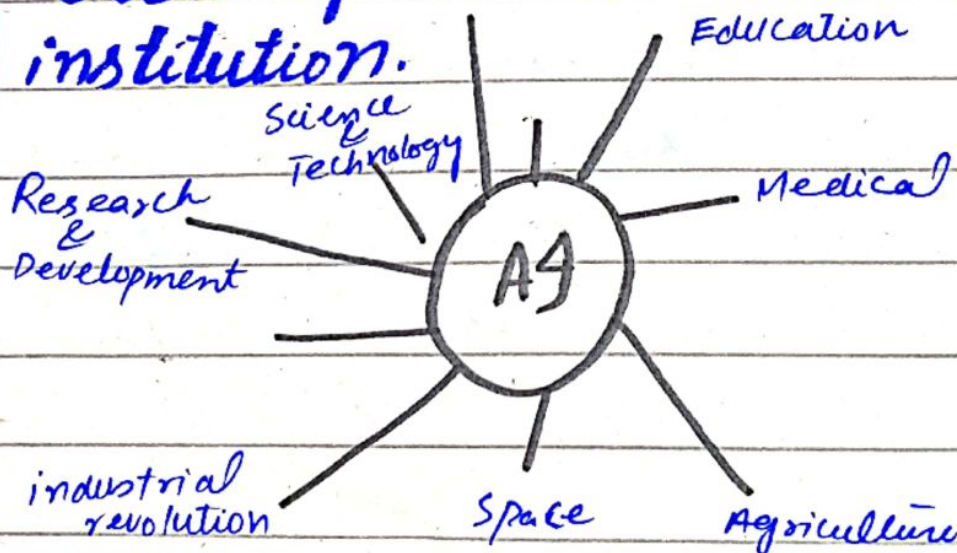 institution.
Education
Science
&
Technology
Medical
Research
&
Development
AI
industrial
revolution
Space
Agriculture